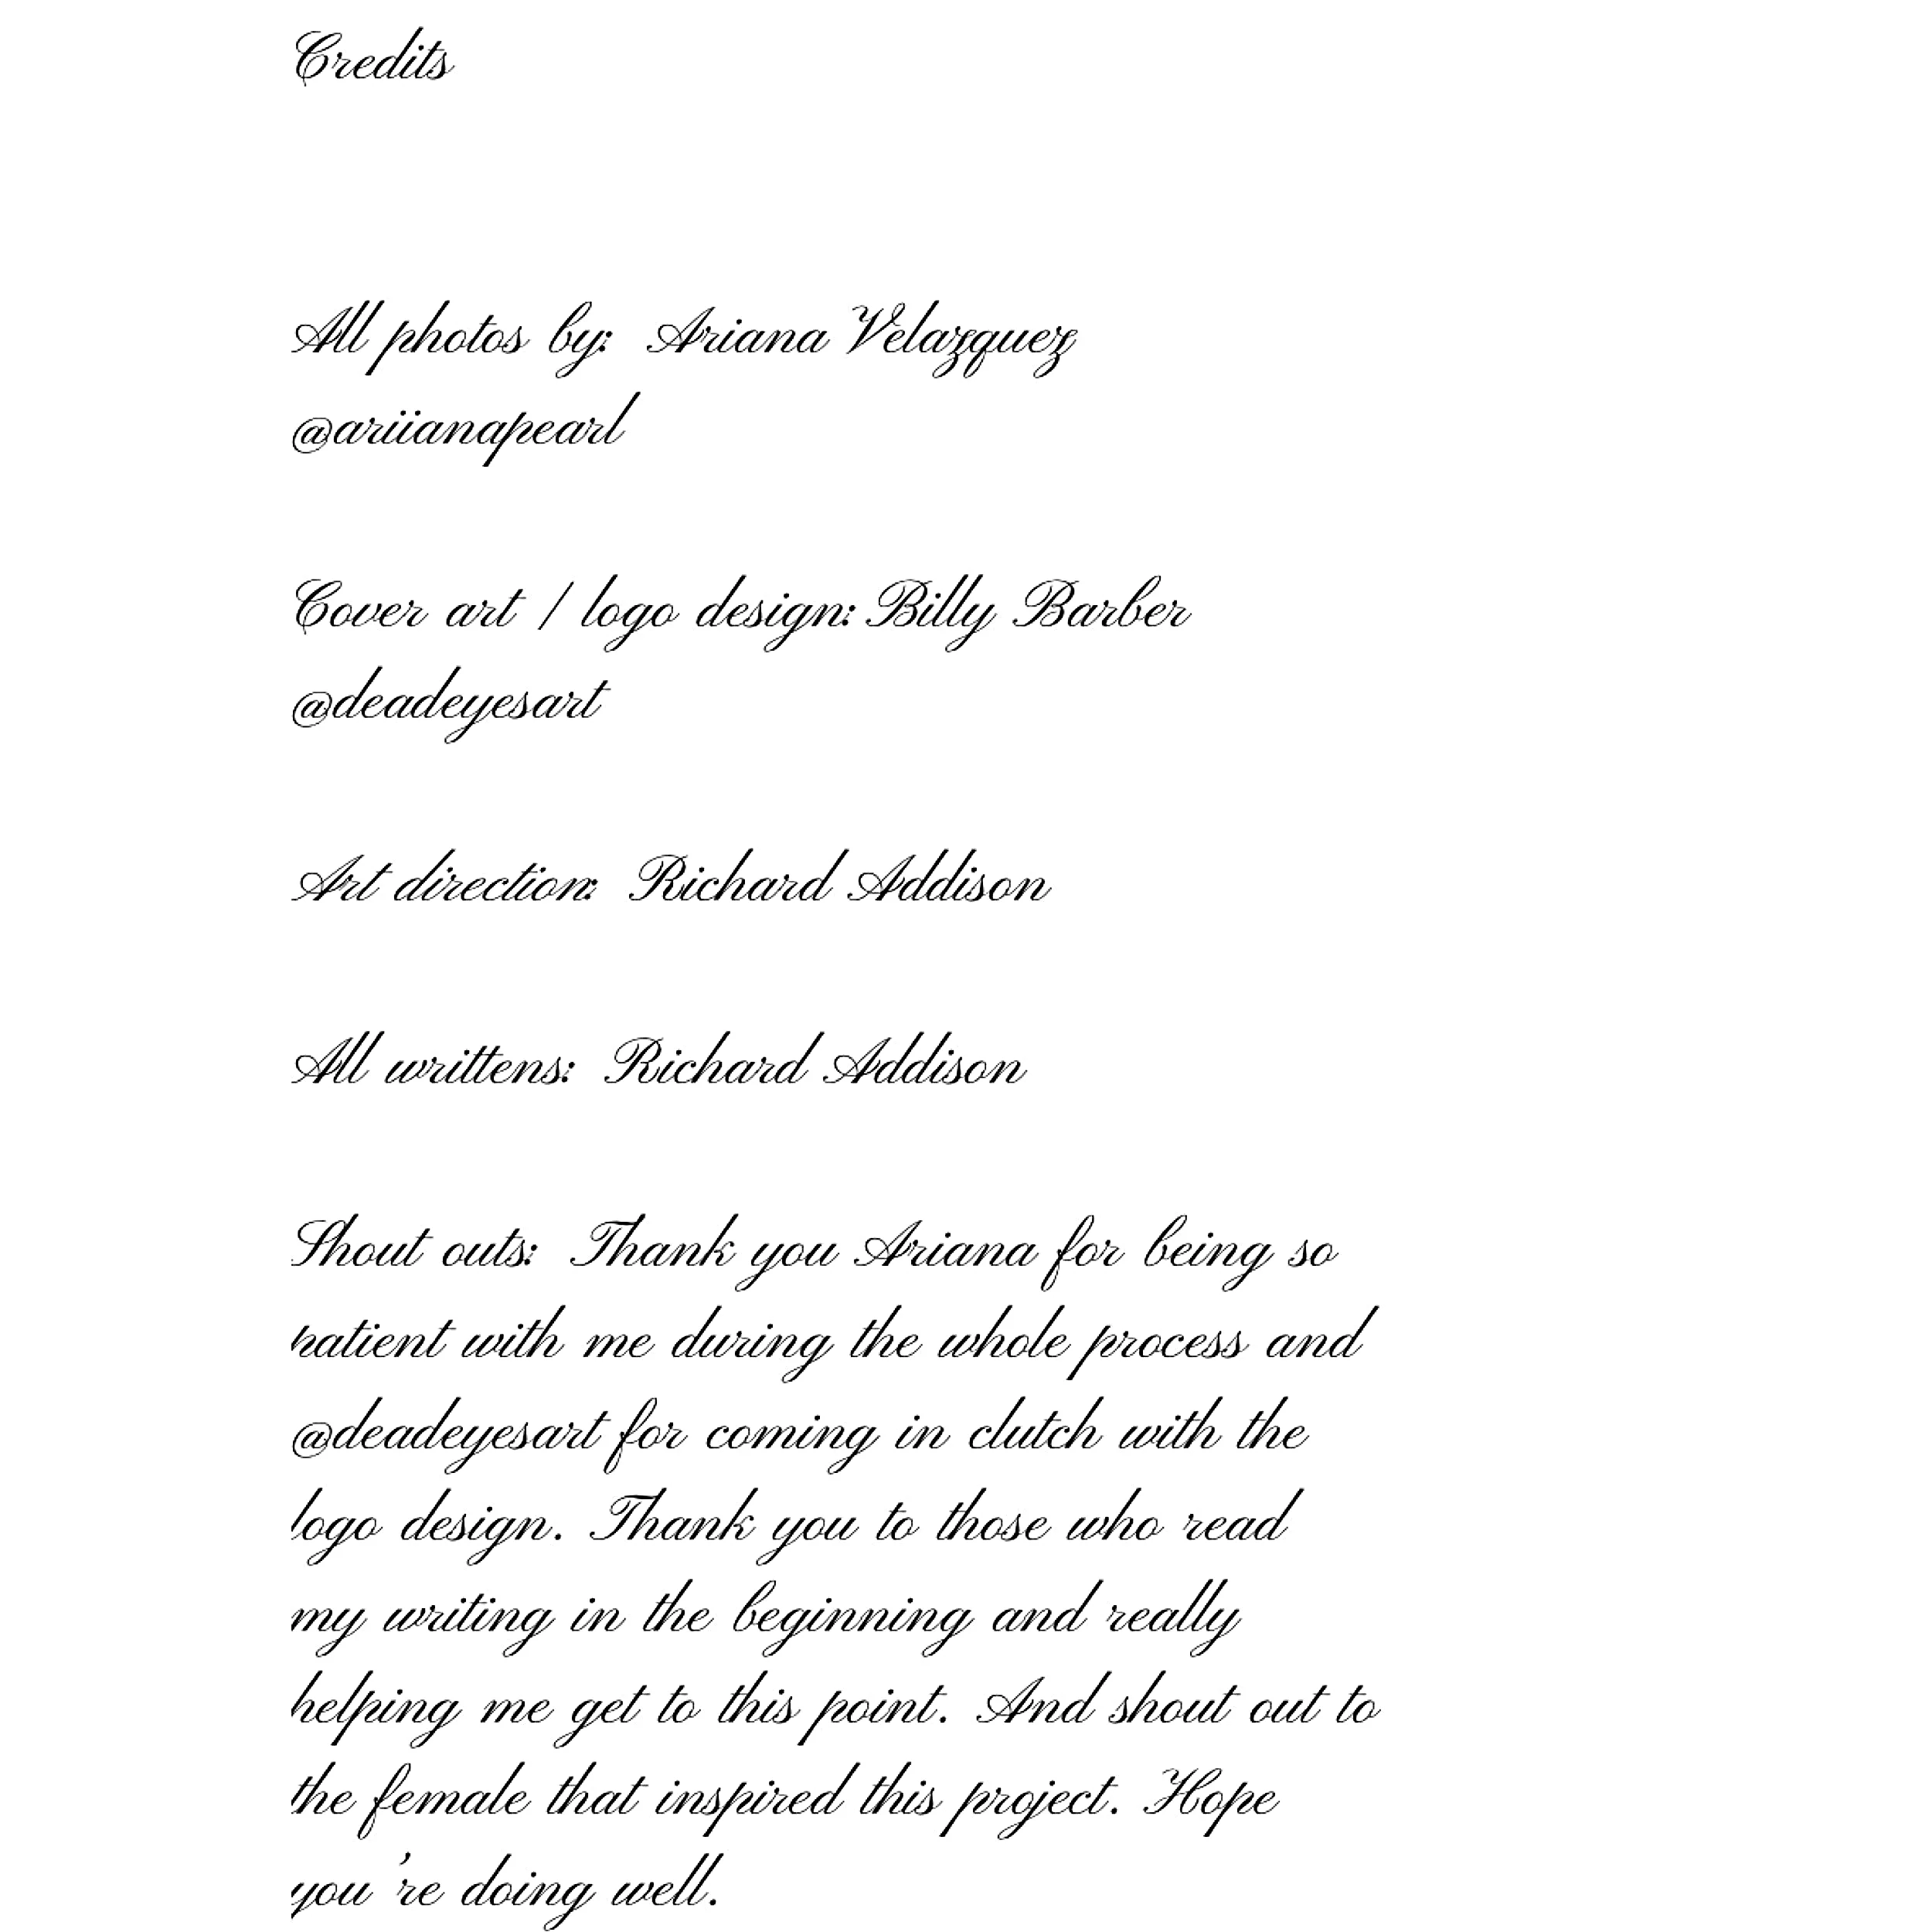 Credits
All photos by: Ariana Velazquez
@ariianapearl
Cover art / logo design: Billy Barber
@deadeyesart
Art direction: Richard Addison
All writtens: Richard Addison
Shout outs: Thank you Ariana for being so
patient with me during the whole process and
@deadeyesart for coming in clutch with the
logo design. Thank you to those who read
my writing in the beginning and really
helping me get to this point. And shout out to
the female that inspired this project. Hope
you're doing well.